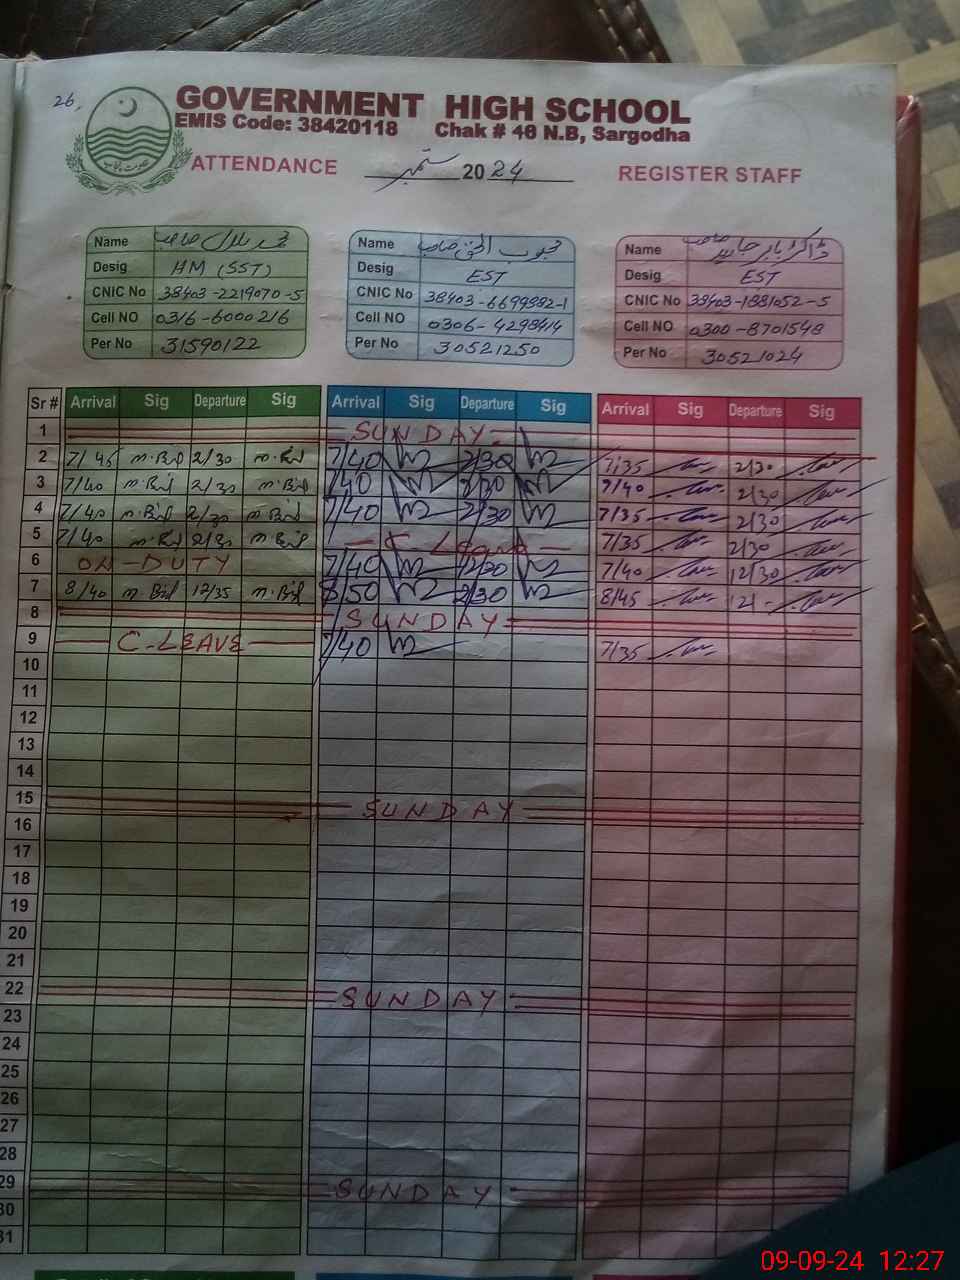 26,
GOVERNMENT HIGH SCHOOL
EMIS Code: 38420118 Chak # 48 N.B, Sargodha
ATTENDANCE ستمبر 2024 REGISTER STAFF
Name محمد بلال صاحب
Desig HM (SST)
CNIC No 38403-2219070-5
Cell NO 0316-6000216
Per No 31590122
Name محبوب الحق صاحب
Desig EST
CNIC No 38403-6699882-1
Cell NO 0306-4298414
Per No 30521250
Name ڈاکٹر بابر جاوید صاحب
Desig EST
CNIC No 38403-1881052-5
Cell NO 0300-8701548
Per No 30521024
Sr # Arrival Sig Departure Sig Arrival Sig Departure Sig Arrival Sig Departure Sig
1 SUNDAY
2 7/45 m.Bil 2/30 m.Bil 7/40 2/30 7/35 2/30
3 7/40 m.Bil 2/30 m.Bil 7/40 2/30 7/40 2/30
4 7/40 m.Bil 2/30 m.Bil 7/40 2/30 7/35 2/30
5 7/40 m.Bil 2/30 m.Bil C-Leave 7/35 2/30
6 ON-DUTY 7/40 12/30 7/40 12/30
7 8/40 m.Bil 12/35 m.Bil 8/50 2/30 8/45 12/-
8 SUNDAY
9 C-LEAVE 7/40 7/35
10
11
12
13
14
15 SUNDAY
16
17
18
19
20
21
22 SUNDAY
23
24
25
26
27
28
29 SUNDAY
30
31
09-09-24 12:27